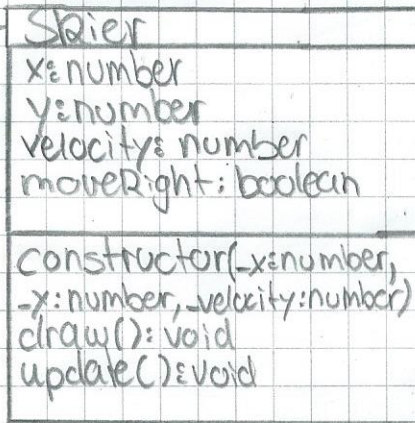 Skier
x: number
y: number
velocity: number
moveRight: boolean
constructor(_x: number,
_x: number, _velocity: number)
draw(): void
update(): void